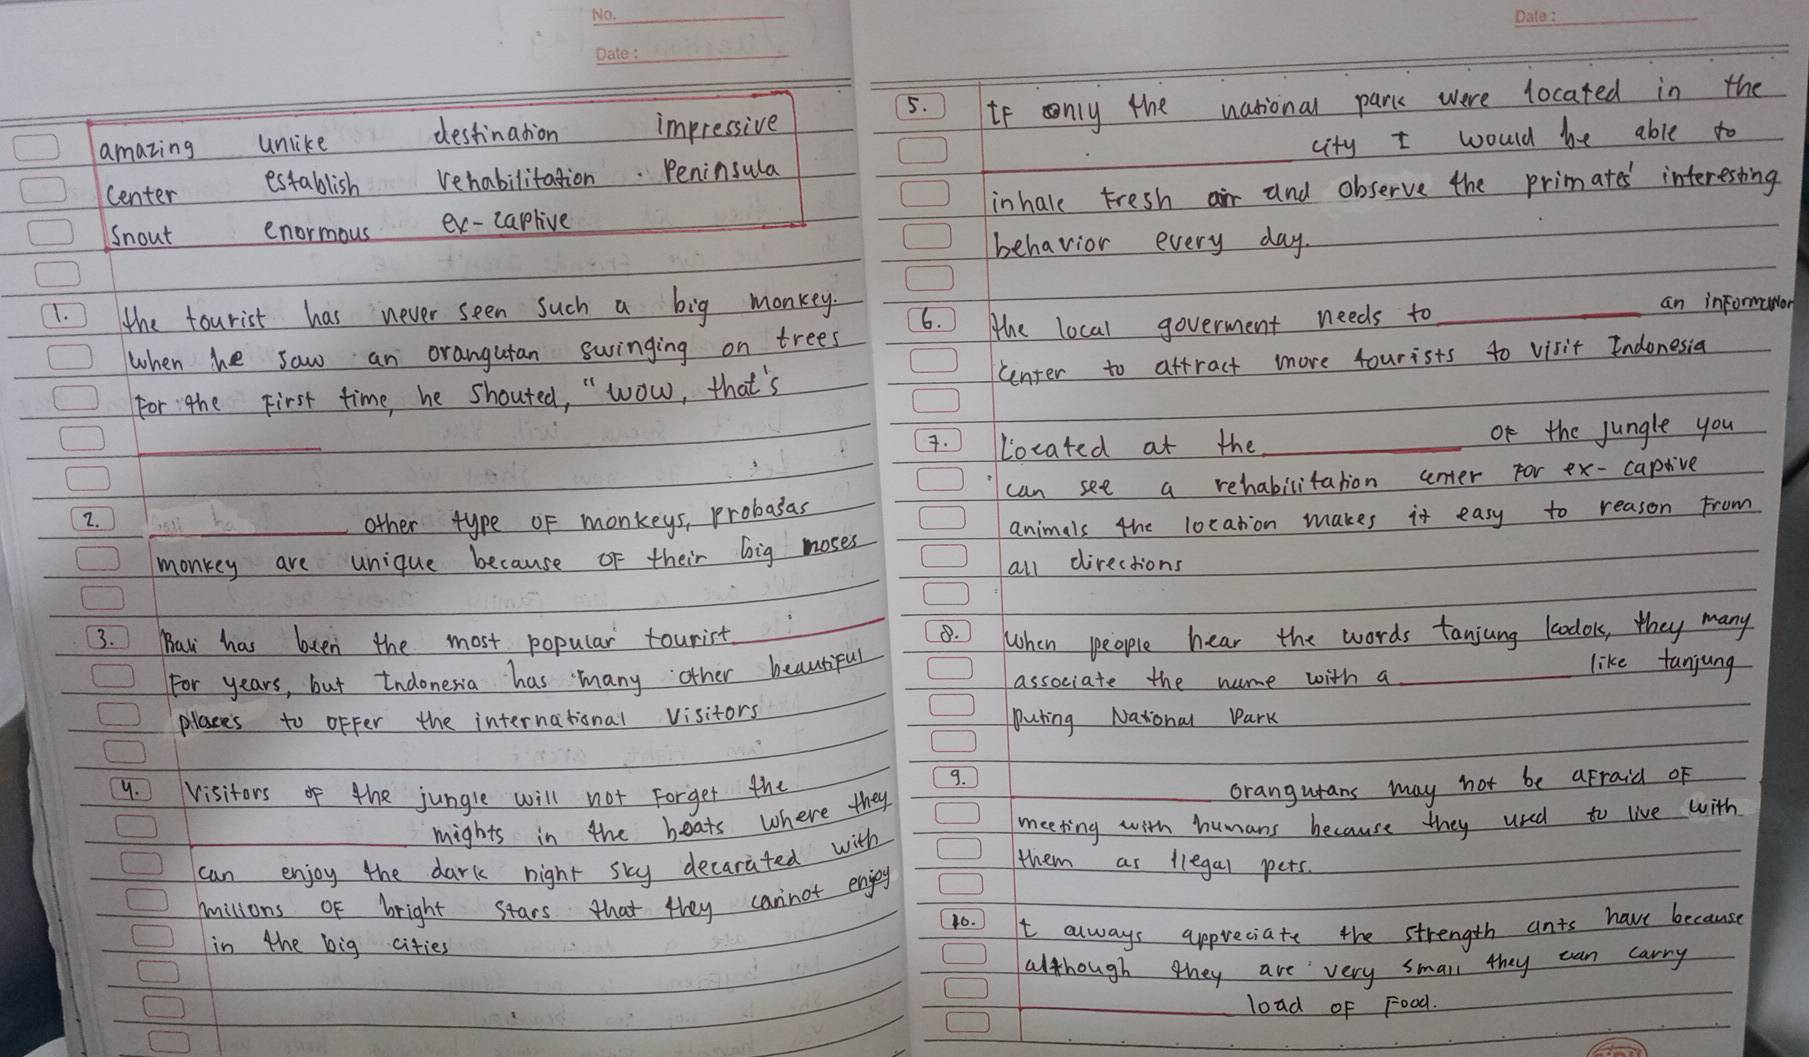 No.
Date:
amazing unlike destination impressive
center establish rehabilitation Peninsula
snout enormous ex-captive
1. the tourist has never seen such a big monkey.
when he saw an orangutan swinging on trees
For the First time, he shouted, "wow, that's
2. other type of monkeys, probasas
monkey are unique because of their big noses
3. Bali has been the most popular tourist
For years, but Indonesia has many other beautiful
places to offer the international visitors
4. Visitors of the jungle will not Forget the
mights in the boats where they
can enjoy the dark night sky decarated with
millions of bright stars that they cannot enjoy
in the big cities
Date:
5. If only the national park were located in the
city I would be able to
inhale fresh air and observe the primates' interesting
behavior every day.
6. the local goverment needs to an information
center to attract more tourists to visit Indonesia
7. Located at the of the jungle you
can see a rehabilitation center for ex-captive
animals the location makes it easy to reason from
all directions
8. When people hear the words tanjung kodok, they many
associate the name with a like tanjung
Puting National Park
9. orangutans may not be afraid of
meeting with humans because they used to live with
them as ilegal pets.
10. I always appreciate the strength ants have because
although they are very small they can carry
load of Food.